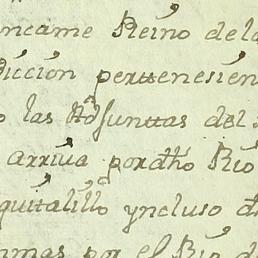 ncame Reino dela
diccion pertenesien
o las Adjunttas del
arriva por dho Rio
quitalillo yncluso d
mas por el Rio d